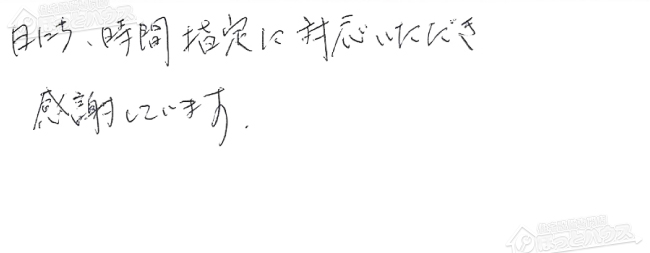 日にち、時間指定に対応いただき
感謝しています.